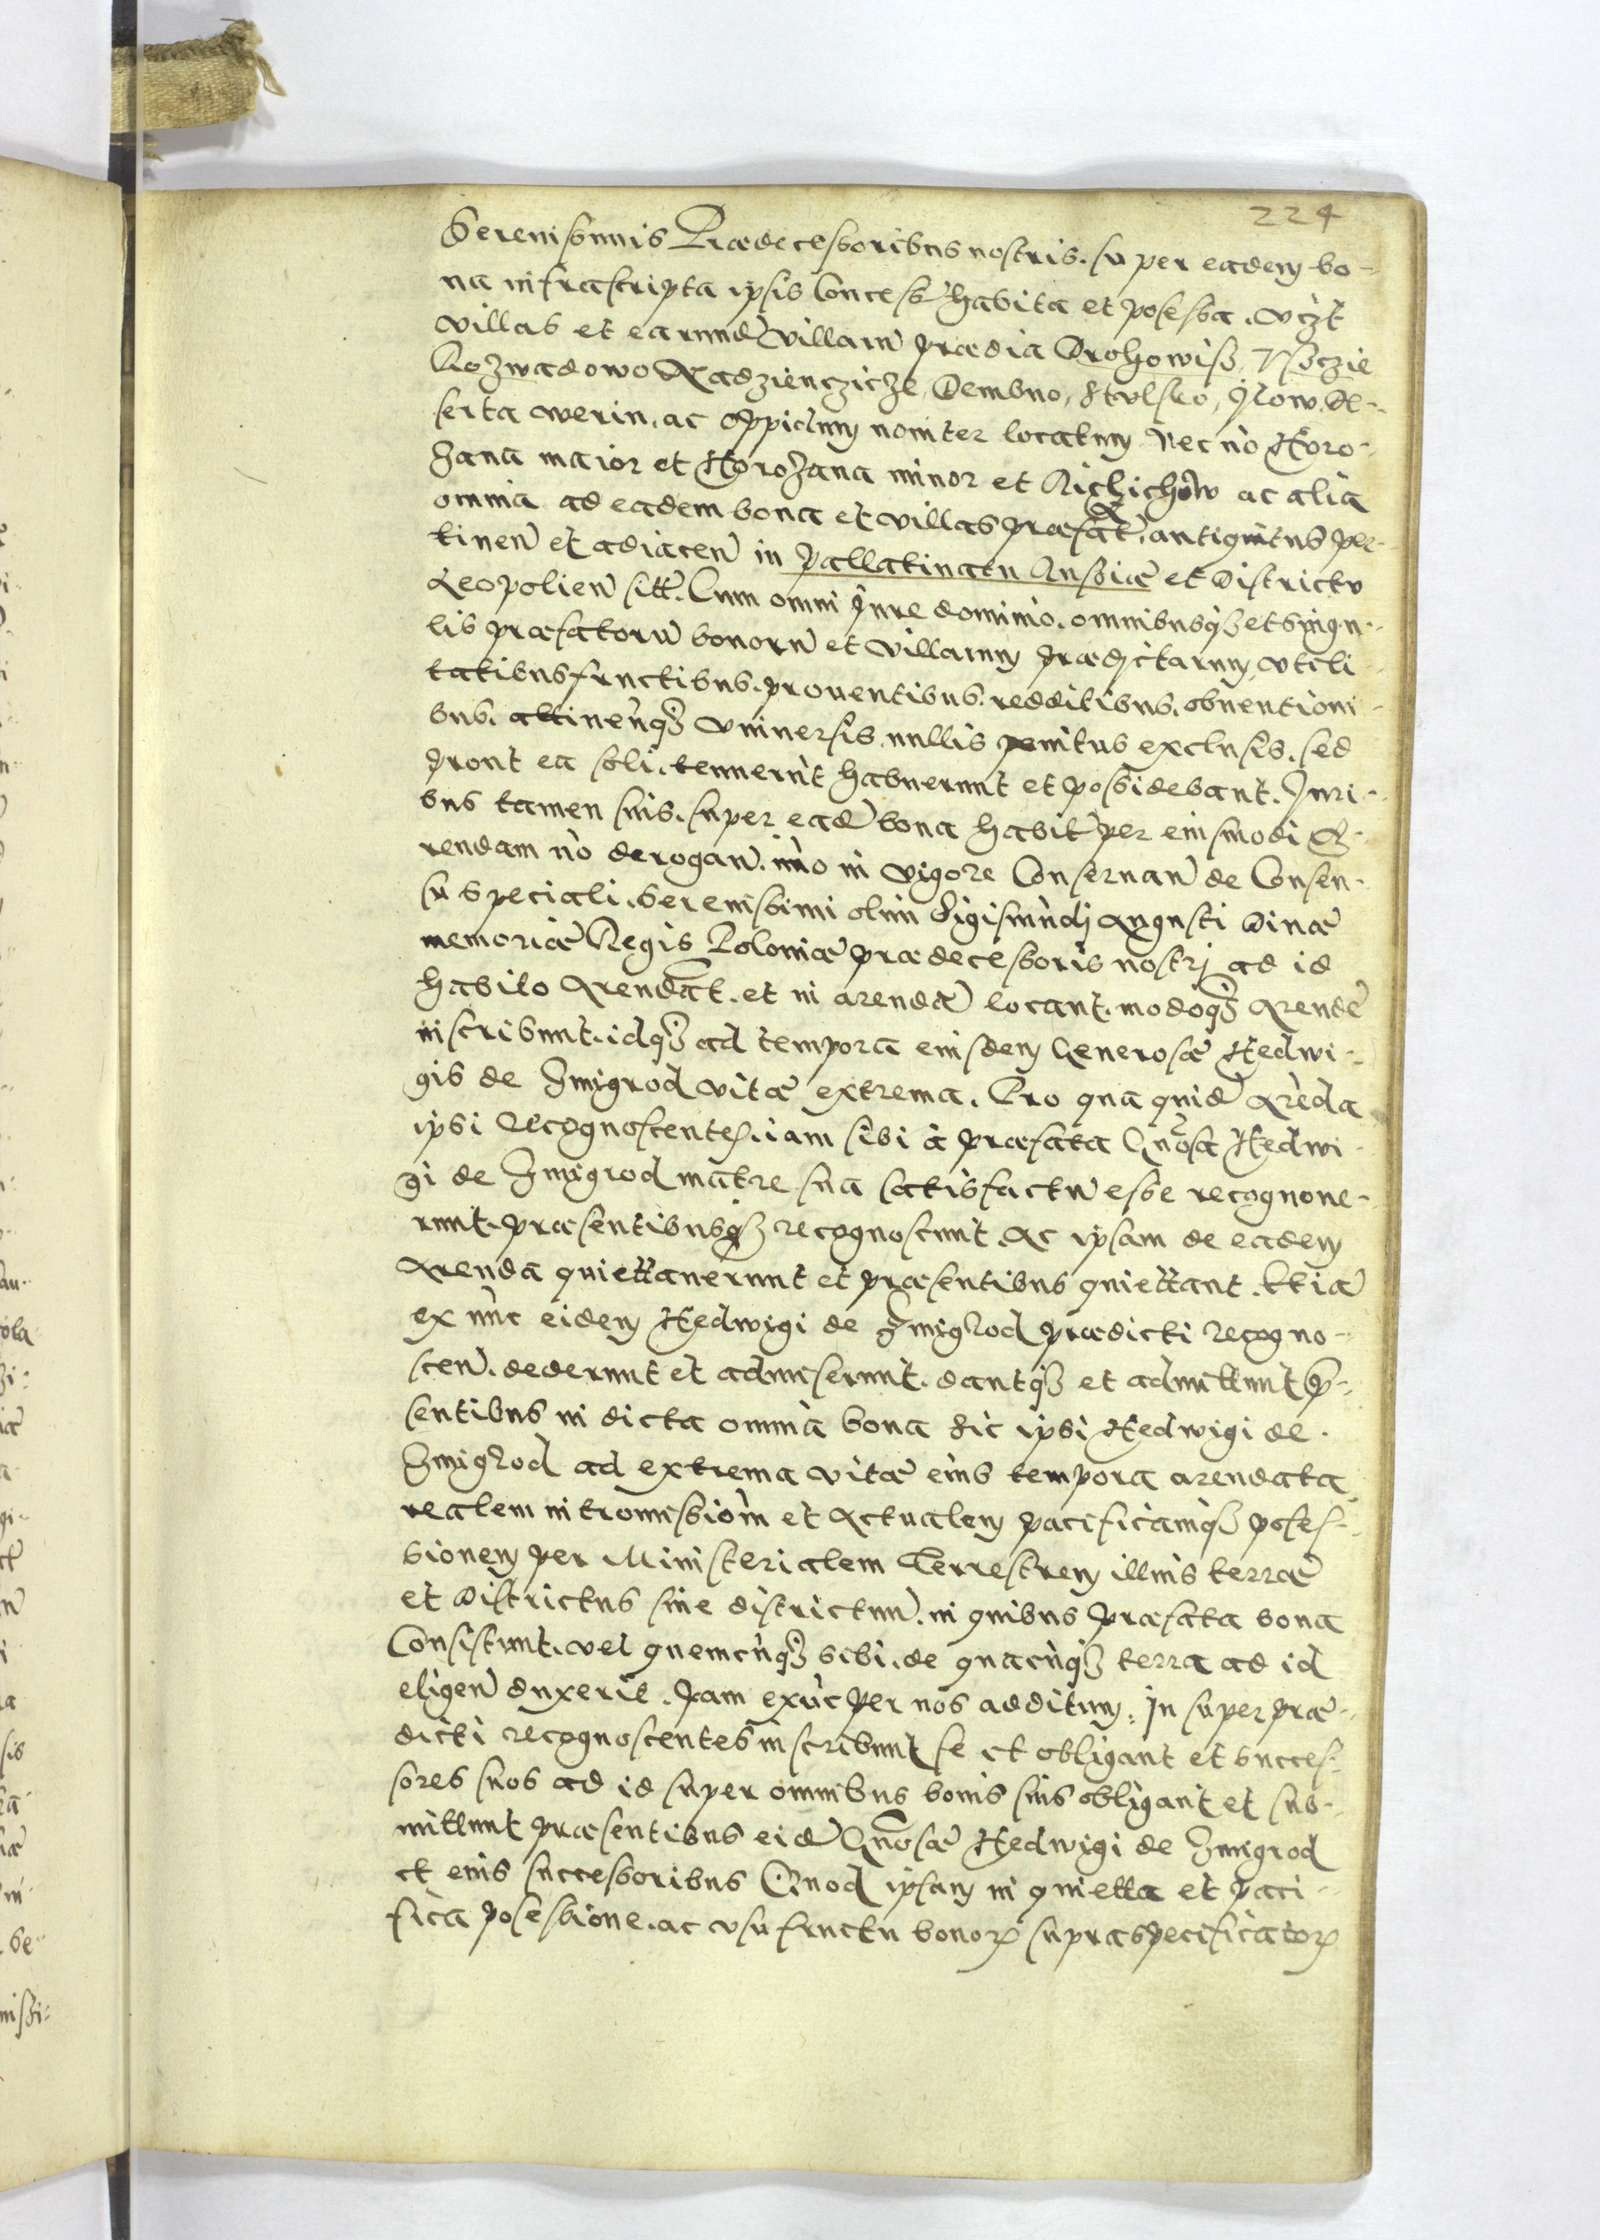 224
Serenissimis Prædecessoribus nostris. super eadem bo-
na infrascripta ipsis Concess habita et possessa. vczt
villas et earund villarū prædia Drohowiss, Usczie
Rozwadowo Radzienczicze, Dembno, Stvlsko, Ilow. De-
serta werin. ac oppidum noviter locatum Nec nō Horo-
zana maior et Horozana minor et Richichow ac alia
omnia ad eadem bona et villas præfat. antiquitus per-
tineñ et adiaceñ in pallatinatu Russiæ et Districtv
Leopolieñ sitt. Cum omni Iure dominio. omnibusq3 et singu-
lis præfatorū bonorū et villarum prædictarum, vtili-
tatibus fructibus. prouentibus. redditibus. obuentioni-
bus. attineñq3 vniuersis. nullis penitus exclusis. sed
pront ea soli. tenuerūt habuerunt et possidebant. Iuri-
bus tamen suis. super eadē bona habit per eiusmodi A-
rendam nō derogañ. imo in vigore Conseruañ de Consen-
su speciali. Serenissimi olim Sigismūdj Augusti Diuæ
memoriæ Regis Poloniæ prædecessoris nostrj ad id
habito Arendat. et in arendā locant. modoq3 Arendē
inscribunt. idq3 ad tempora eiusdem Generosæ Hedwi-
gis de Zmigrod vitæ extrema. Pro qua quidē Arēda
ipsi recognoscentes. iam sibi à præfata Gnosa Hedwi-
gi de Zmigrod matre sua satisfactū esse recognoue-
runt. præsentibusq3 recognoscunt. Ac ipsam de eadem
Arenda quiettauerunt et præsentibus quiettant. Etiā
ex nūc eidem Hedwigi de Zmigrod prædicti recogno-
sceñ. dederunt et admiserunt. dantq3 et admittunt p-
sentibus in dicta omnia bona sic ipsi Hedwigi de
Zmigrod ad extrema vitæ eius tempora arendata
realem intromissiom et Actualem pacificamq3 posses-
sionem per Ministerialem Terrestrem illius terræ
et Districtus siue districtuū. in quibus præfata bona
Consistunt. vel quemcūq3 sibi. de quacūq3 terra ad id
eligeñ duxerit. Iam exūc per nos additum. Insuper præ-
dicti recognoscentes inscribunt se et obligant et succes-
sores suos ad id super omnibus bonis suis obligant et sub-
mittunt præsentibus eidē Gnosæ Hedwigi de Zmigrod
et eius successoribus Quod ipsam in quietta et paci-
fica possessione. ac vsufructu bonor supraspecificator